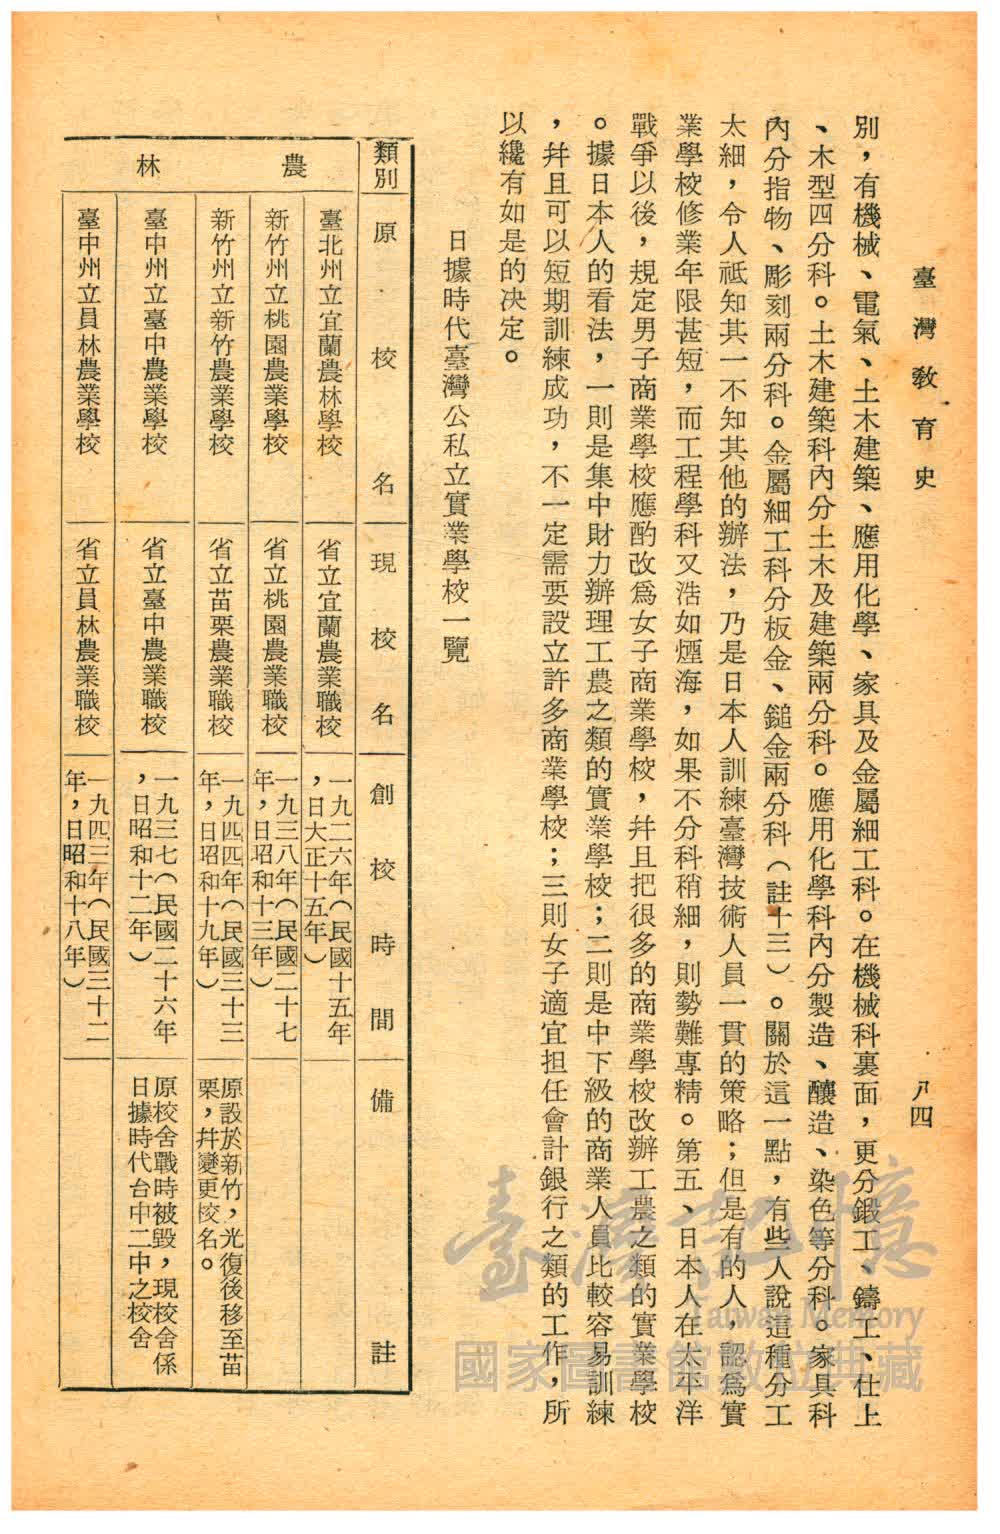 臺灣教育史
八四
別，有機械、電氣、土木建築、應用化學、家具及金屬細工科。在機械科裏面，更分鍛工、鑄工、仕上
、木型四分科。土木建築科內分土木及建築兩分科。應用化學科內分製造、釀造、染色等分科。家具科
內分指物、彫刻兩分科。金屬細工科分板金、鎚金兩分科（註十三）。關於這一點，有些人說這種分工
太細，令人祗知其一不知其他的辦法，乃是日本人訓練臺灣技術人員一貫的策略；但是有的人，認爲實
業學校修業年限甚短，而工程學科又浩如煙海，如果不分科稍細，則勢難專精。第五、日本人在太平洋
戰爭以後，規定男子商業學校應酌改爲女子商業學校，幷且把很多的商業學校改辦工農之類的實業學校
。據日本人的看法，一則是集中財力辦理工農之類的實業學校；二則是中下級的商業人員比較容易訓練
，幷且可以短期訓練成功，不一定需要設立許多商業學校；三則女子適宜担任會計銀行之類的工作，所
以纔有如是的決定。
日據時代臺灣公私立實業學校一覽
類別
原校名
現校名
創校時間
備註
農林
臺北州立宜蘭農林學校
省立宜蘭農業職校
一九二六年（民國十五年
，日大正十五年）
新竹州立桃園農業學校
省立桃園農業職校
一九三八年（民國二十七
年，日昭和十三年）
新竹州立新竹農業學校
省立苗栗農業職校
一九四四年（民國三十三
年，日昭和十九年）
原設於新竹，光復後移至苗
栗，幷變更校名。
臺中州立臺中農業學校
省立臺中農業職校
一九三七（民國二十六年
，日昭和十二年）
原校舍戰時被毀，現校舍係
日據時代台中二中之校舍
臺中州立員林農業學校
省立員林農業職校
一九四三年（民國三十二
年，日昭和十八年）
臺灣記憶
Taiwan Memory
國家圖書館數位典藏